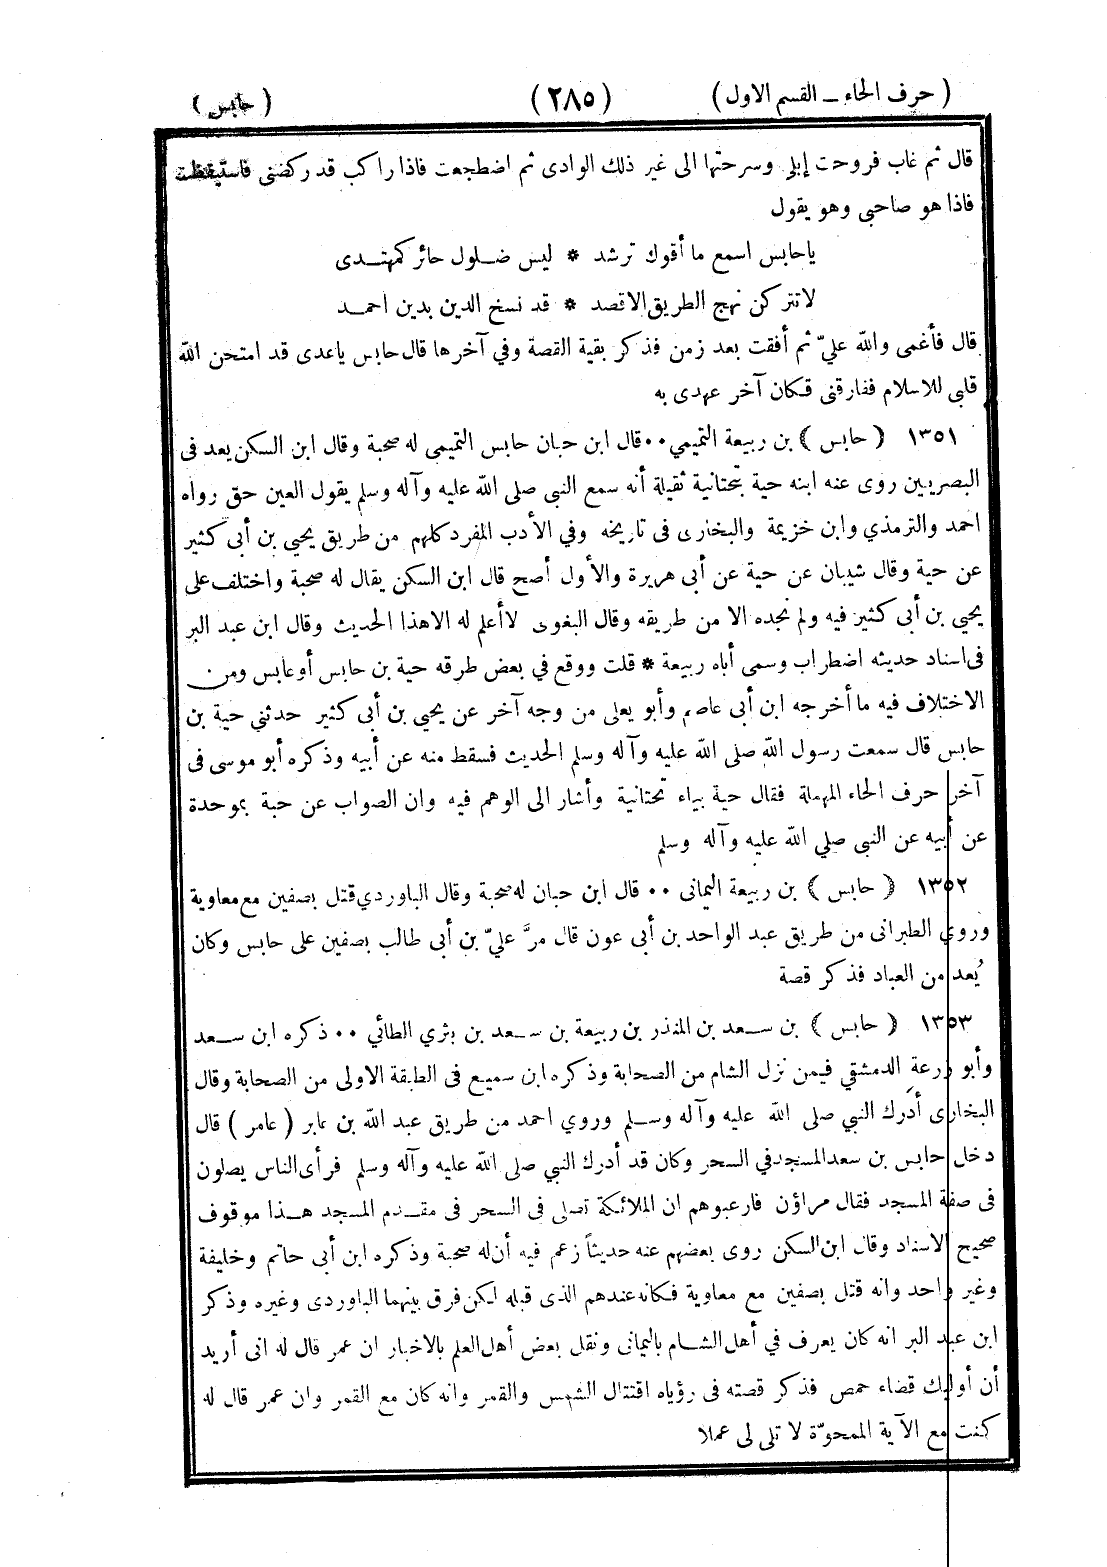 ( حرف الحاء ـ القسم الاول ) (٢٨٥) ( حابس )
قال ثم غاب فروحت إبلى وسرحتها الى غير ذلك الوادى ثم اضطجعت فاذا راكب قد ركضنى فاستيقظت
فاذا هو صاحبى وهو يقول
ياحابس اسمع ما أقوك ترشد * ليس ضلول حائر كمهتدى
لاتتركن نهج الطريق الاقصد * قد نسخ الدين بدين احمد
قال فأغمى والله علىّ ثم أفقت بعد زمن فذكر بقية القصة وفي آخرها قال حابس ياعدى قد امتحن الله
قلبى للاسلام ففارقنى فكان آخر عهدى به
١٣٥١ ( حابس ) بن ربيعة التميمي ٠٠ قال ابن حبان حابس التميمى له صحبة وقال ابن السكن يعد فى
البصريين روى عنه ابنه حية بتحتانية ثقيلة أنه سمع النبى صلى الله عليه وآله وسلم يقول العين حق رواه
احمد والترمذي وابن خزيمة والبخارى فى تاريخه وفي الأدب المفرد كلهم من طريق يحيي بن أبى كثير
عن حية وقال شيبان عن حية عن أبى هريرة والأول أصح قال ابن السكن يقال له صحبة واختلف على
يحيي بن أبى كثير فيه ولم نجده الا من طريقه وقال البغوى لاأعلم له الاهذا الحديث وقال ابن عبد البر
فى اسناد حديثه اضطراب وسمى أباه ربيعة * قلت ووقع في بعض طرقه حية بن حابس أوعابس ومن
الاختلاف فيه ما أخرجه ابن أبى عاصم وأبو يعلى من وجه آخر عن يحيي بن أبى كثير حدثني حية بن
حابس قال سمعت رسول الله صلى الله عليه وآله وسلم الحديث فسقط منه عن أبيه وذكره أبو موسى فى
آخر حرف الحاء المهملة فقال حية بياء تحتانية وأشار الى الوهم فيه وان الصواب عن حبة بموحدة
عن أبيه عن النبى صلي الله عليه وآله وسلم
١٣٥٢ ( حابس ) بن ربيعة اليمانى ٠٠ قال ابن حبان له صحبة وقال الباوردي قتل بصفين مع معاوية
وروي الطبرانى من طريق عبد الواحد بن أبى عون قال مرَّ علىّ بن أبى طالب بصفين على حابس وكان
يُعد من العباد فذكر قصة
١٣٥٣ ( حابس ) بن سعد بن المنذر بن ربيعة بن سعد بن يثري الطائي ٠٠ ذكره ابن سعد
وأبو زرعة الدمشقي فيمن نزل الشام من الصحابة وذكره ابن سميع فى الطبقة الاولى من الصحابة وقال
البخارى أدرك النبي صلى الله عليه وآله وسلم وروي احمد من طريق عبد الله بن عابر ( عامر ) قال
دخل حابس بن سعد المسجد في السحر وكان قد أدرك النبي صلى الله عليه وآله وسلم فرأى الناس يصلون
فى صفة المسجد فقال مراؤن فارعبوهم ان الملائكة تصلى فى السحر فى مقدم المسجد هذا موقوف
صحيح الاسناد وقال ابن السكن روى بعضهم عنه حديثاً زعم فيه أن له صحبة وذكره ابن أبى حاتم وخليفة
وغير واحد وانه قتل بصفين مع معاوية فكانه عندهم الذى قبله لكن فرق بينهما الباوردى وغيره وذكر
ابن عبد البر انه كان يعرف في أهل الشام باليمانى ونقل بعض أهل العلم بالاخبار ان عمر قال له انى أريد
أن أوليك قضاء حمص فذكر قصته فى رؤياه اقتتال الشمس والقمر وانه كان مع القمر وان عمر قال له
كنت مع الآية الممحوّة لا تلى لى عملا